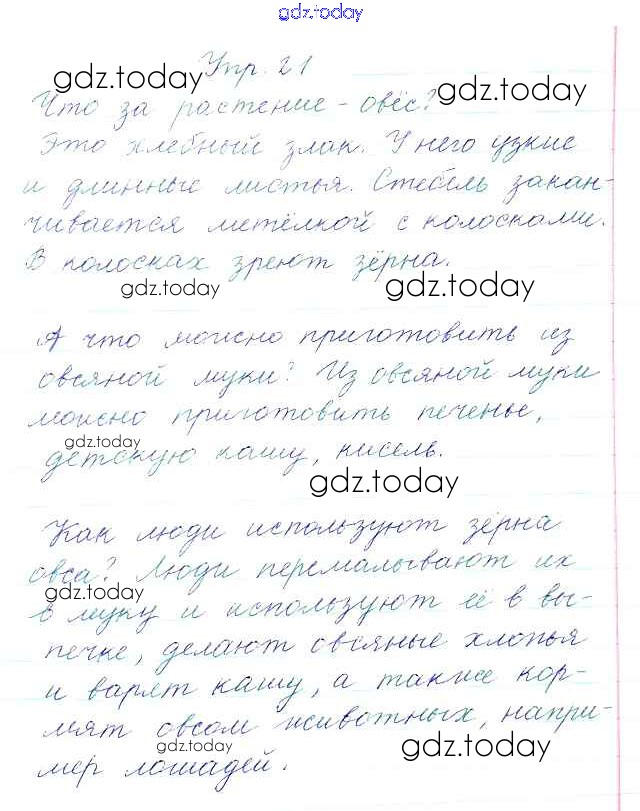 gdz.today
Упр. 21
gdz.today
Что за растение - овёс?
gdz.today
Это хлебный злак. У него узкие
и длинные листья. Стебель закан-
чивается метёлкой с колосками.
В колосках зреют зёрна.
gdz.today
gdz.today
А что можно приготовить из
овсяной муки? Из овсяной муки
можно приготовить печенье,
gdz.today
детскую кашу, кисель.
gdz.today
Как люди используют зёрна
овса? Люди перемалывают их
gdz.today
в муку и используют её в вы-
печке, делают овсяные хлопья
и варят кашу, а также кор-
мят овсом животных, напри-
gdz.today
gdz.today
мер лошадей.